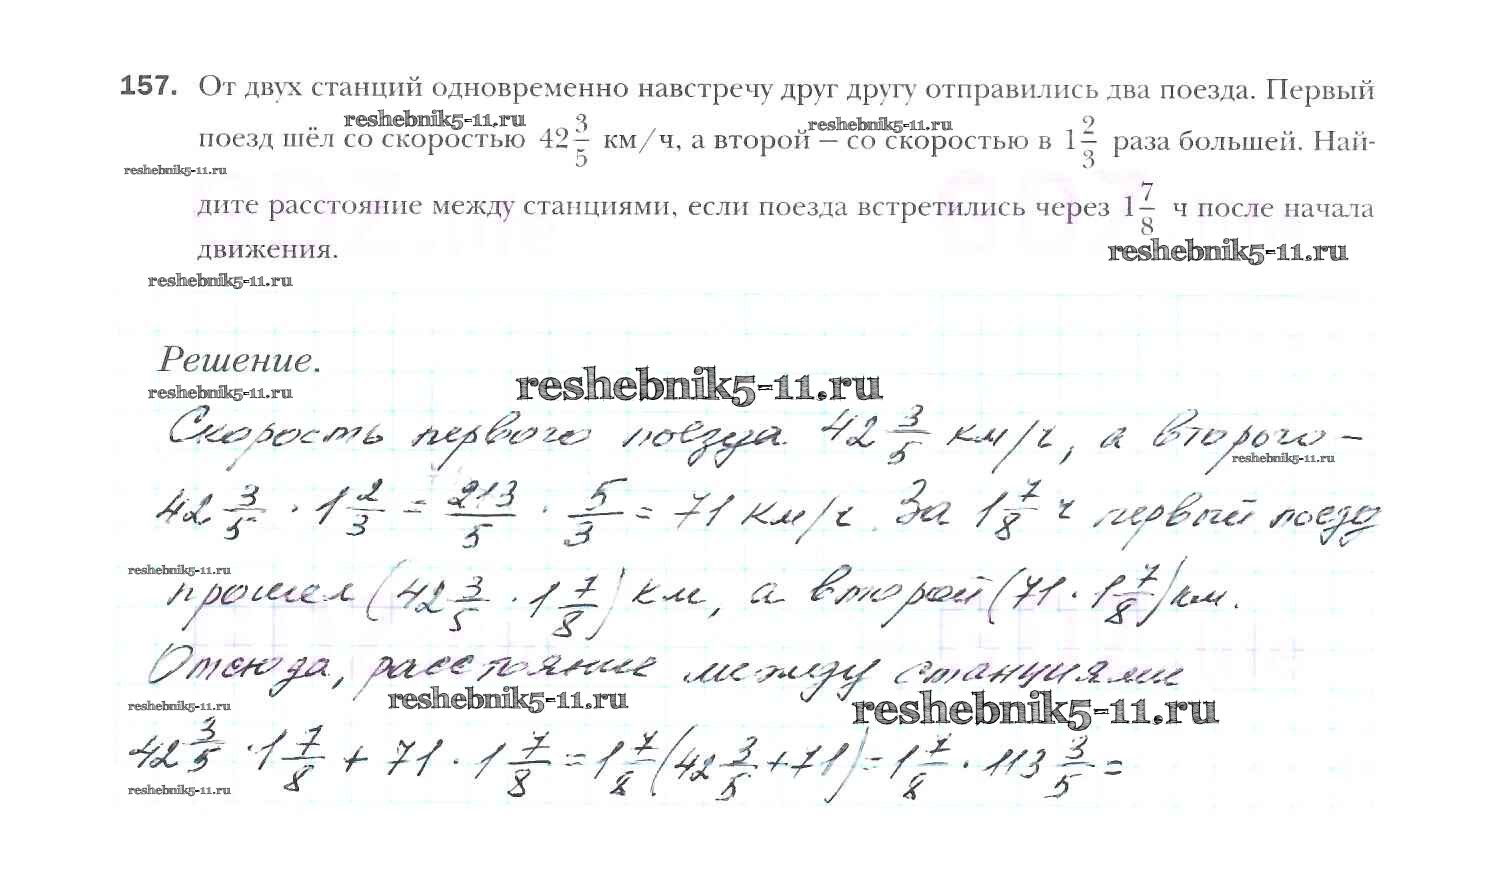 157. От двух станций одновременно навстречу друг другу отправились два поезда. Первый
reshebnik5-11.ru reshebnik5-11.ru
поезд шёл со скоростью 42 3/5 км/ч, а второй — со скоростью в 1 2/3 раза большей. Най-
reshebnik5-11.ru
дите расстояние между станциями, если поезда встретились через 1 7/8 ч после начала
движения.
reshebnik5-11.ru
reshebnik5-11.ru
Решение.
reshebnik5-11.ru
reshebnik5-11.ru
Скорость первого поезда 42 3/5 км/ч, а второго –
reshebnik5-11.ru
42 3/5 · 1 2/3 = 213/5 · 5/3 = 71 км/ч. За 1 7/8 ч первый поезд
reshebnik5-11.ru
прошел (42 3/5 · 1 7/8) км, а второй (71 · 1 7/8) км.
Отсюда, расстояние между станциями
reshebnik5-11.ru reshebnik5-11.ru reshebnik5-11.ru
42 3/5 · 1 7/8 + 71 · 1 7/8 = 1 7/8 (42 3/5 + 71) = 1 7/8 · 113 3/5 =
reshebnik5-11.ru